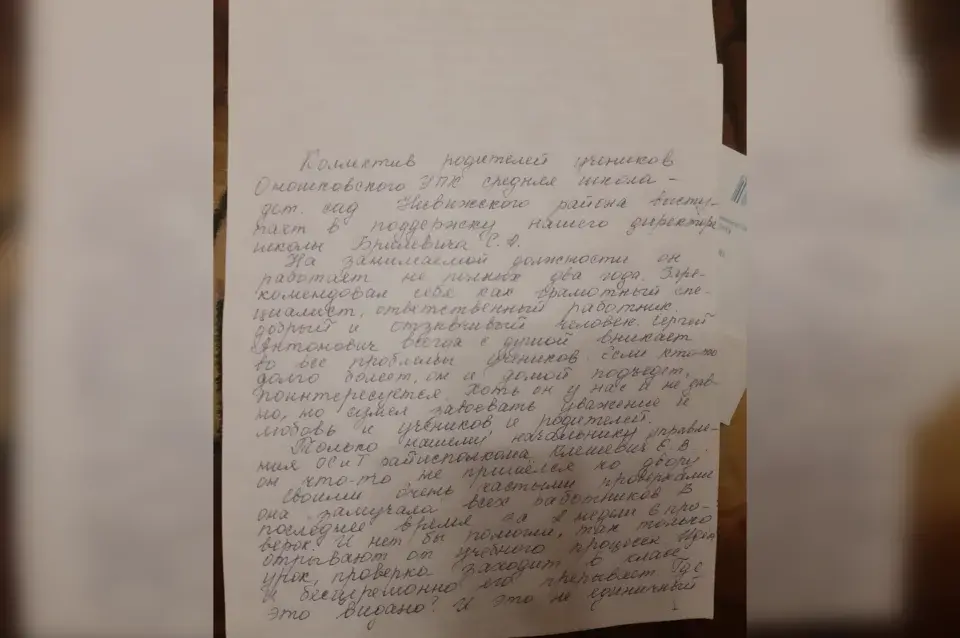 Коллектив родителей учеников
Оношковского УПК средняя школа –
дет. сад Несвижского района высту-
пает в поддержку нашего директора
школы С. А.
На занимаемой должности он
работает не полных два года. Заре-
комендовал себя как грамотный спе-
циалист, ответственный работник,
добрый и отзывчивый человек. Сергей
Антонович всегда с душой вникает
во все проблемы учеников. Если кто-то
долго болеет, он и домой подъедет,
поинтересуется. Хоть он у нас и не дав-
но, но сумел завоевать уважение и
любовь и учеников и родителей.
Только нашему начальнику управле-
ния ОСиТ райисполкома Е. В.
он что-то не пришелся ко двору.
Своими очень частыми проверками
она замучала всех работников. В
последнее время за 2 недели 6 про-
верок. И нет бы помощи, так только
отрывают от учебного процесса. Идет
урок, проверка заходит в класс
и бесцеремонно его прерывает. Где
это видано? И это не единичный